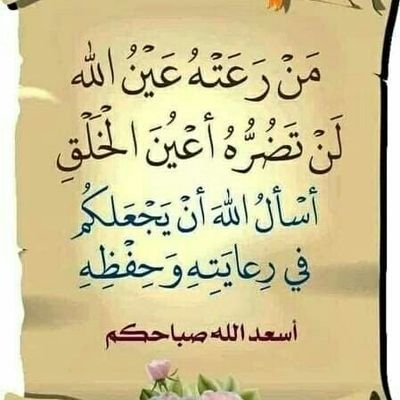 مَنْ رَعَتْهُ عَيْنُ الله
لَنْ تَضُرُّهُ أَعْيُنَ الْخَلْقِ
أَسْأَلُ اللهَ أَنْ يَجْعَلَكُم
فِي رِعَايَتِهِ وَحِفْظِهِ
أسعد الله صباحكم